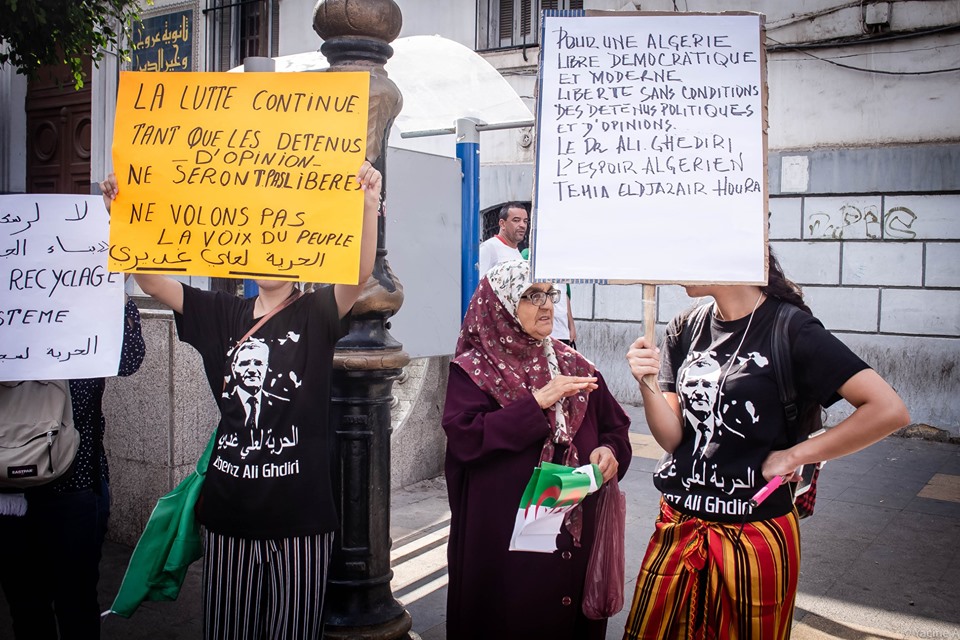 ثانوية عروج
وخير الدين
لا
RECYCLAGE
STEME
الحرية
LA LUTTE CONTINUE
TANT QUE LES DETENUS
D'OPINION
NE SERONT PAS LIBERES
NE VOLONS PAS
LA VOIX DU PEUPLE
الحرية لعلي غديري
POUR UNE ALGERIE
LIBRE DEMOCRATIQUE
ET MODERNE
LIBERTE SANS CONDITIONS
DES DETENUS POLITIQUES
ET D'OPINIONS.
LE DR ALI. GHEDIRI
L'ESPOIR ALGERIEN
TEHIA ELDJAZAIR HOURA
الحرية لعلي غديري
benz Ali Ghdiri
الحرية لعلي
Ali Ghdiri
EASTPAK